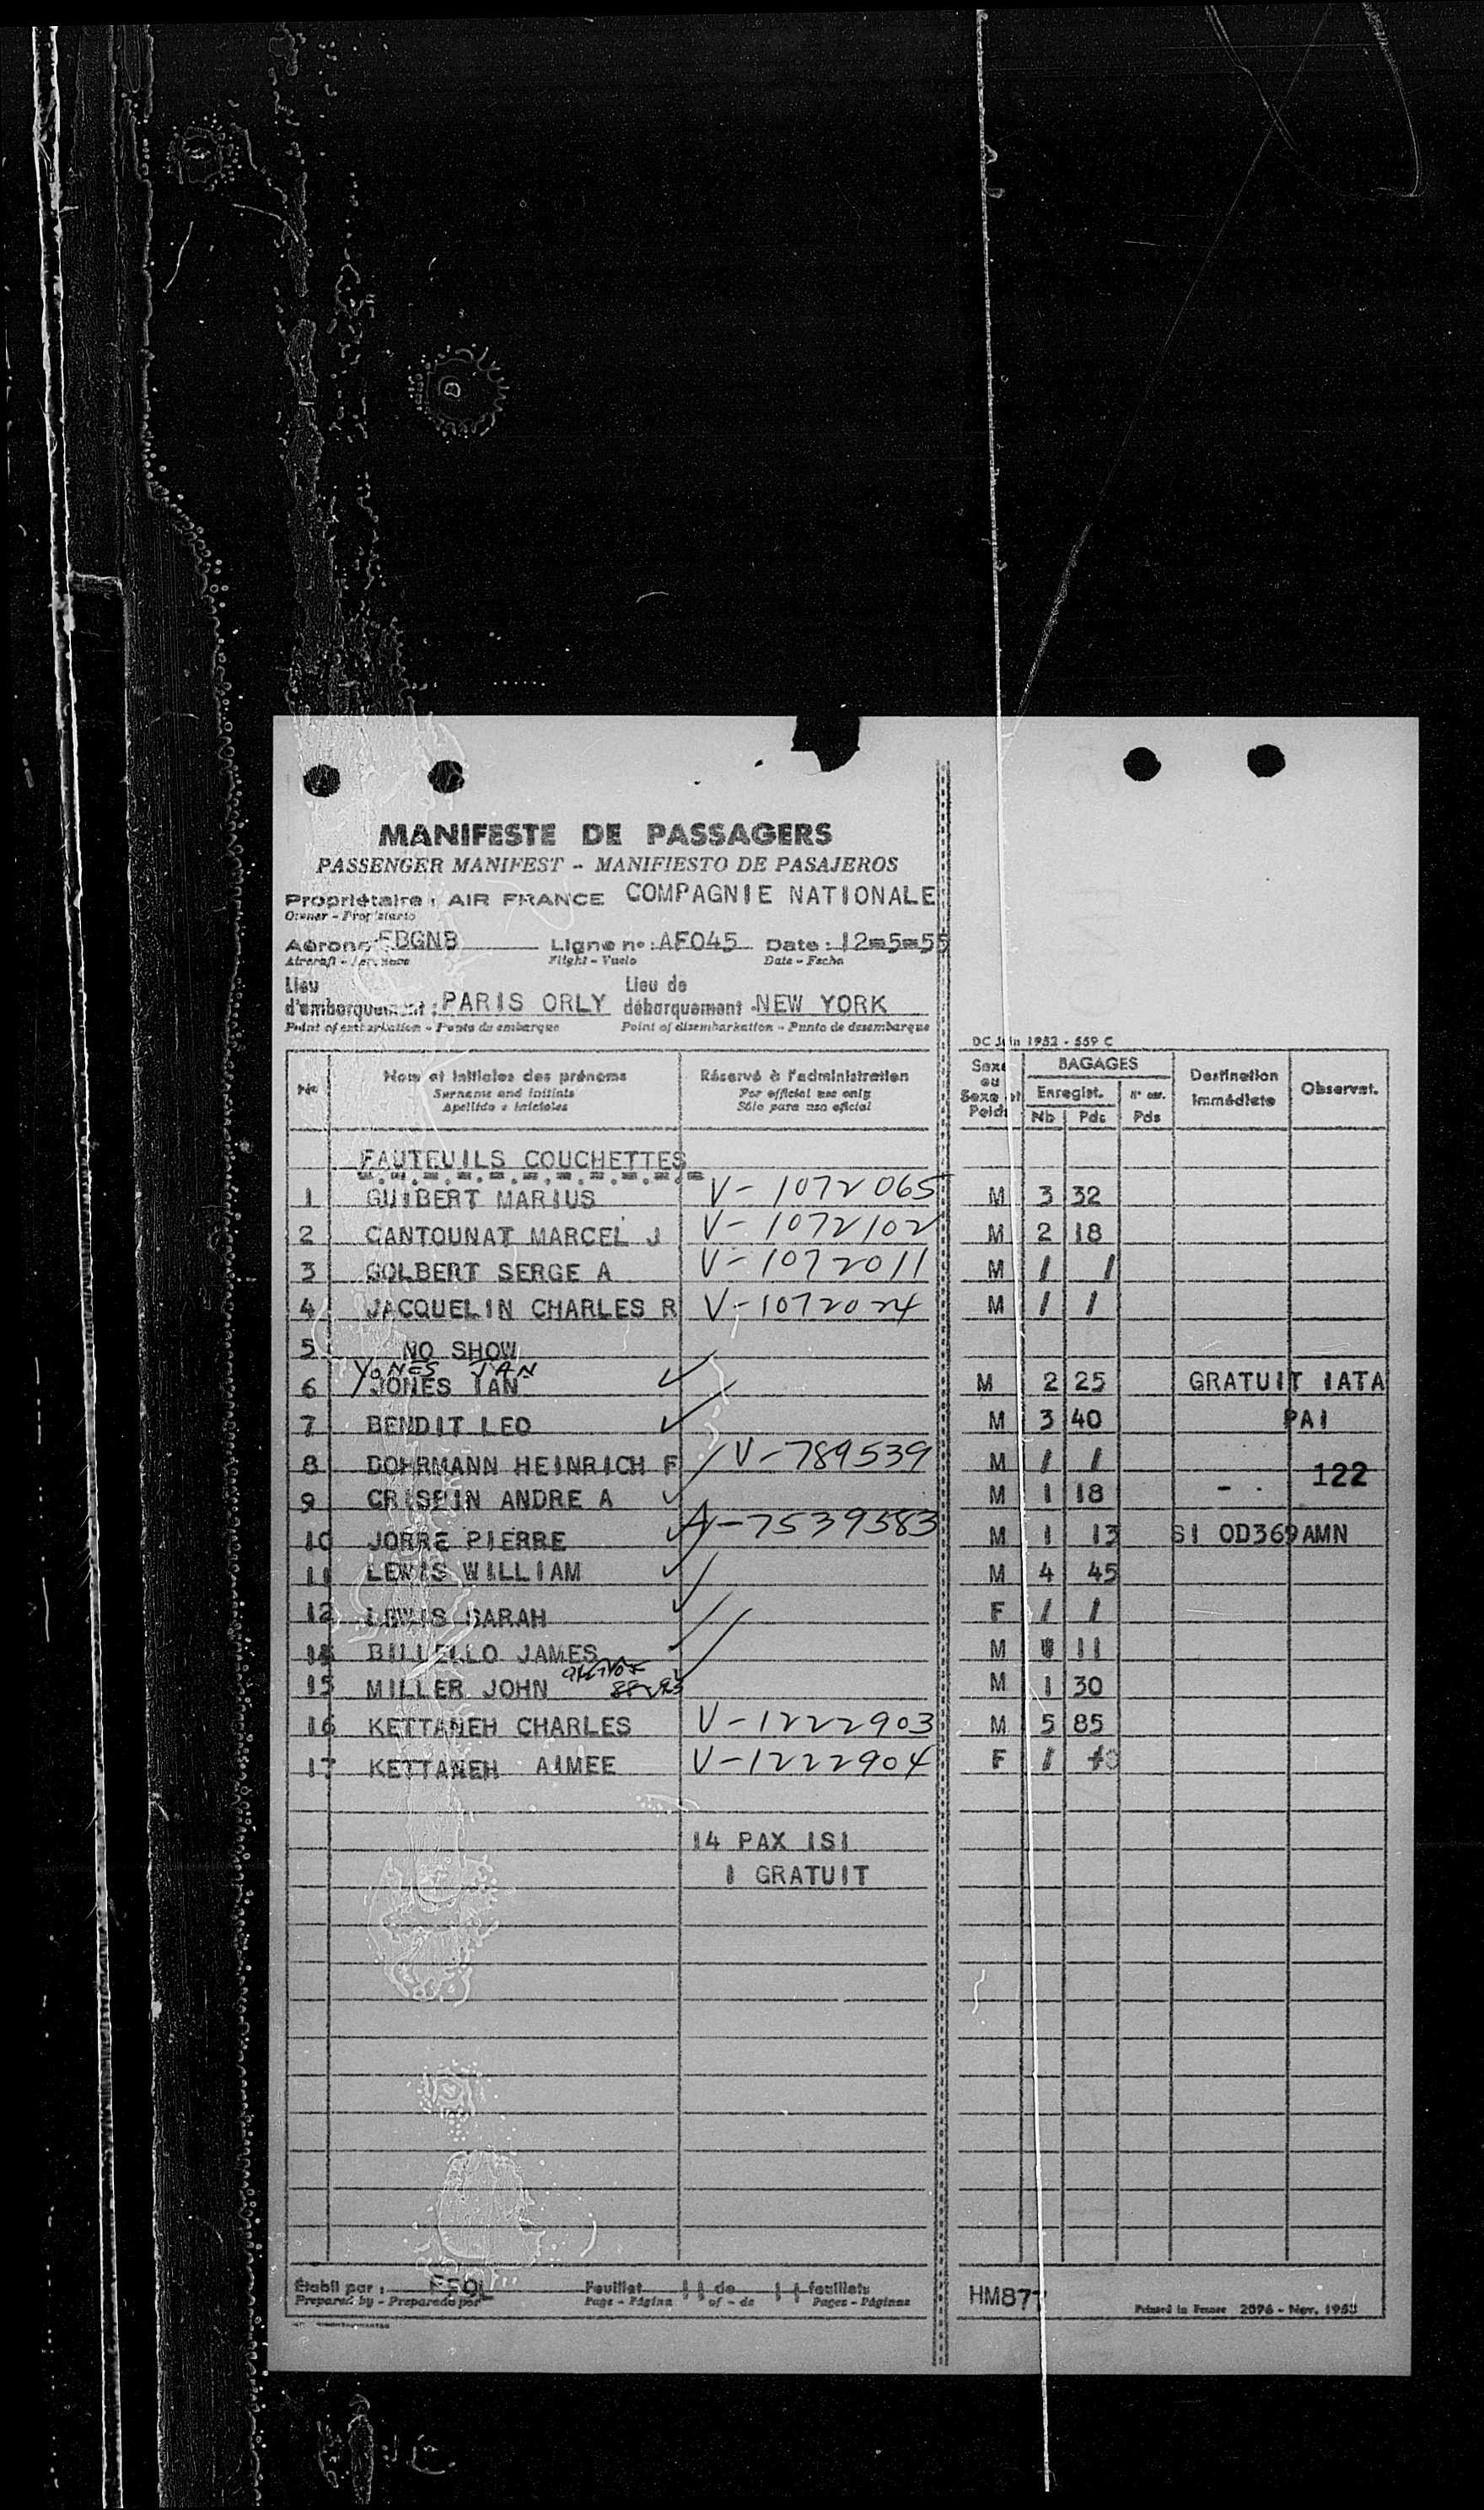 MANIFESTE DE PASSAGERS
PASSENGER MANIFEST - MANIFIESTO DE PASAJEROS
Propriétaire : AIR FRANCE COMPAGNIE NATIONALE
Owner - Propietario
Aéronef FBGNB Ligne no : AF045 Date : 12-5-55
Aircraft - Aeronave Flight - Vuelo Date - Fecha
Lieu d'embarquement : PARIS ORLY Lieu de débarquement NEW YORK
Point of embarkation - Punto de embarque Point of disembarkation - Punto de desembarque
DC Juin 1952 - 559 C
No Nom et initiales des prénoms Réservé à l'administration Sexe ou Sexe et Poids BAGAGES Destination immédiate Observat.
Surname and initials For official use only Enregist. Nb Pds Pds
Apellido e iniciales Sólo para uso oficial
FAUTEUILS COUCHETTES
1 GUIBERT MARIUS V-1072065 M 3 32
2 CANTOUNAT MARCEL J V-1072102 M 2 18
3 GOLBERT SERGE A V-1072011 M / /
4 JACQUELIN CHARLES R V-1072024 M / /
5 NO SHOW
YONES IAN
6 JONES IAN ✓ M 2 25 GRATUIT IATA
7 BENDIT LEO ✓ M 3 40 PAI
8 DOHRMANN HEINRICH F V-789539 M / /
122
9 CRISPIN ANDRE A ✓ M 1 18 -
10 JORRE PIERRE ✓ A-7539383 M 1 13 SI OD369AMN
11 LEWIS WILLIAM ✓ M 4 45
12 LEWIS SARAH ✓ F / /
14 BILLELLO JAMES ✓ M 11
15 MILLER JOHN M 1 30
16 KETTANEH CHARLES V-1222903 M 5 85
17 KETTANEH AIMEE V-1222904 F /
14 PAX ISI
1 GRATUIT
Établi par : Feuillet de feuillets
Prepared by - Preparado por Page - Página of - de Pages - Páginas
HM877
Printed in France 2096 - Nov. 1953